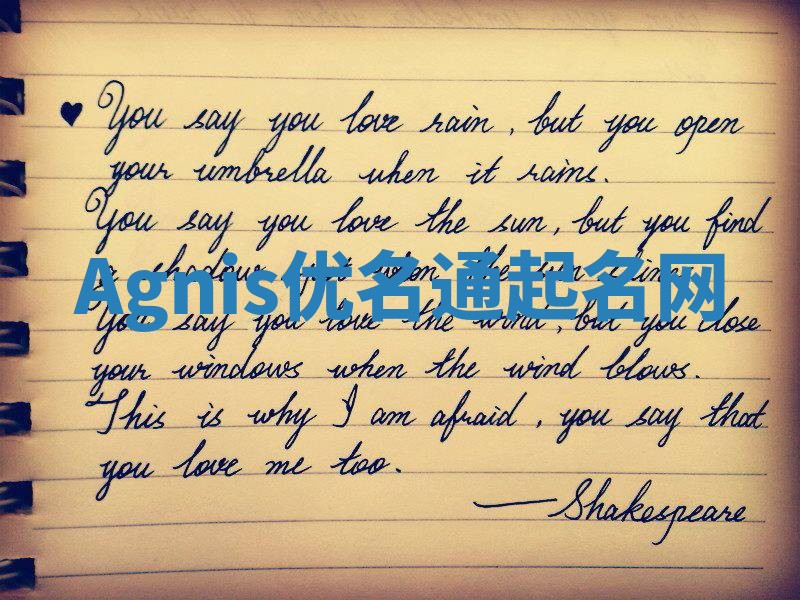 ♥ You say you love rain, but you open
your umbrella when it rains.
You say you love the sun, but you find
a shadow when the sun
Agnis优名通起名网
You say you love the wind, but you close
your windows when the wind blows.
This is why I am afraid, you say that
you love me too.
—Shakespeare